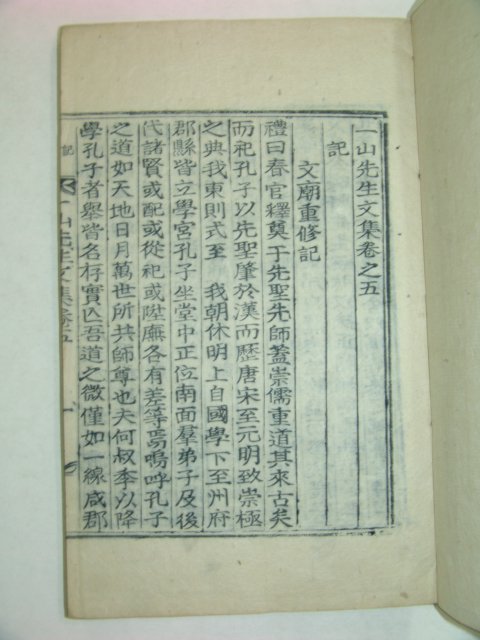 一山先生文集卷之五
記
文廟重修記
禮曰春官釋奠于先聖先師蓋崇儒重道其來古矣
而祀孔子以先聖肇於漢而歷唐宋至元明致崇極
之典我東則式至 我朝休明上自國學下至州府
郡縣皆立學宮孔子坐堂中正位南面羣弟子及後
代諸賢或配或從祀或陞廡各有差等焉嗚呼孔子
之道如天地日月萬世所共師尊也夫何叔季以降
學孔子者舉皆名存實亾吾道之微僅如一線咸郡
一山先生文集卷五
記
一